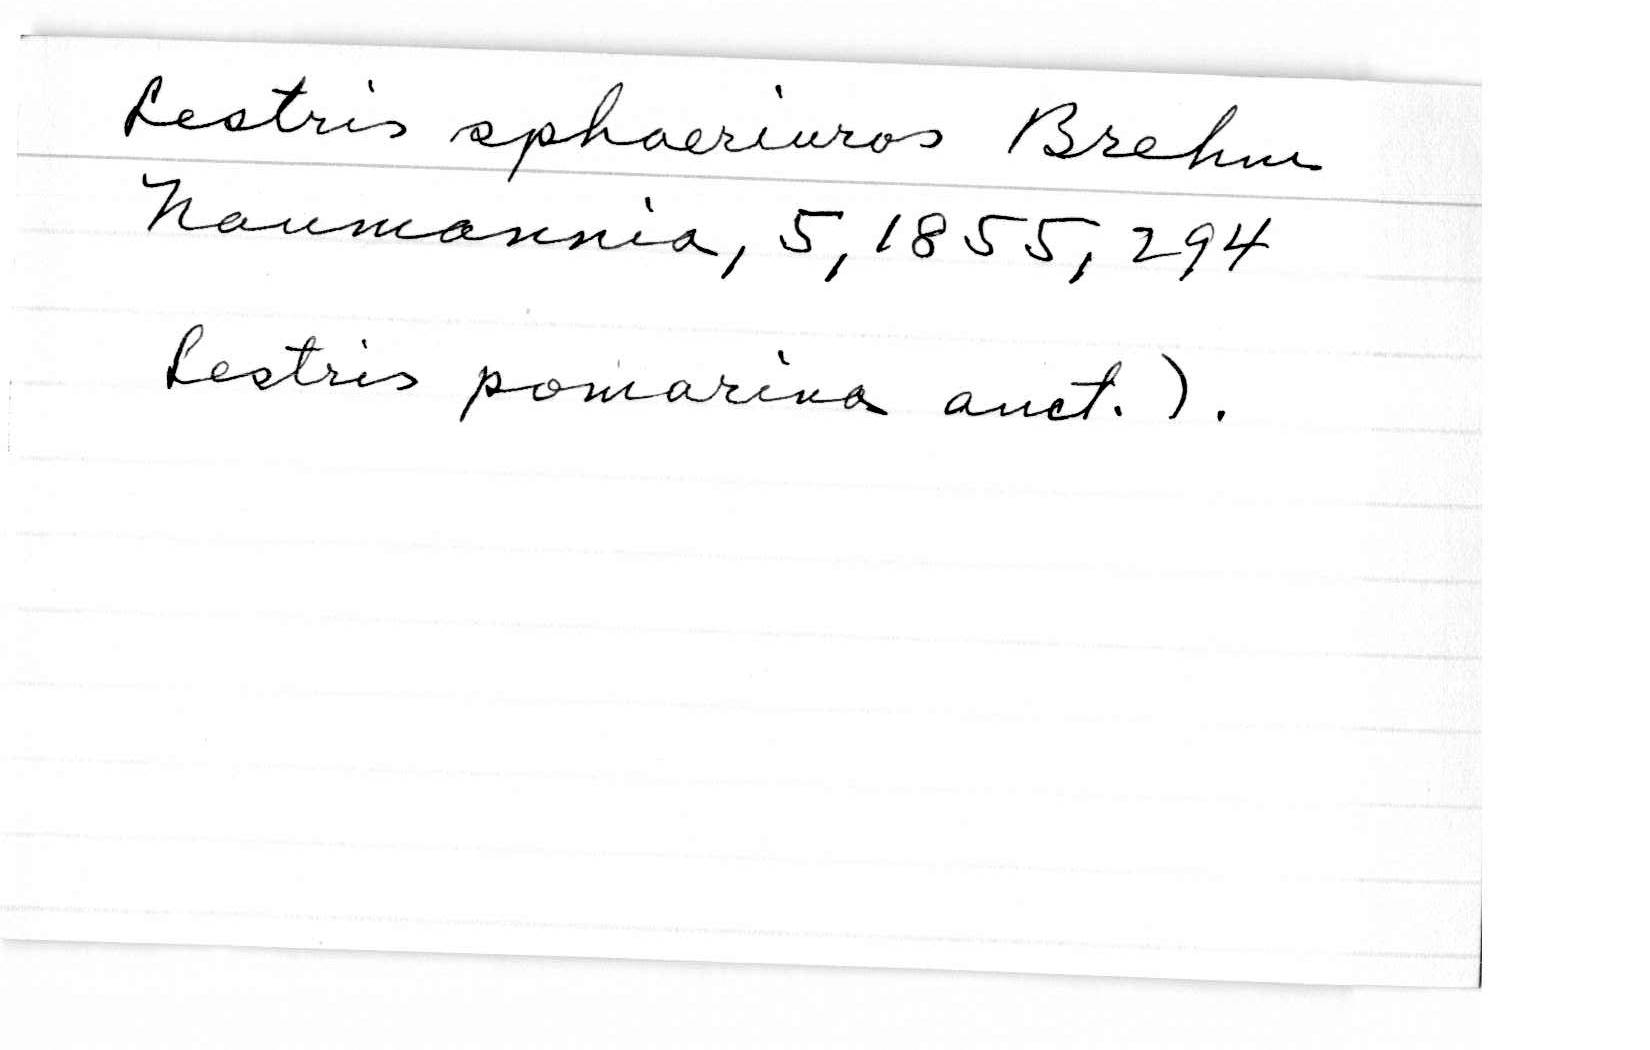 Lestris sphaeriuros Brehm
Naumannia, 5, 1855, 294
Lestris pomarina auct.).